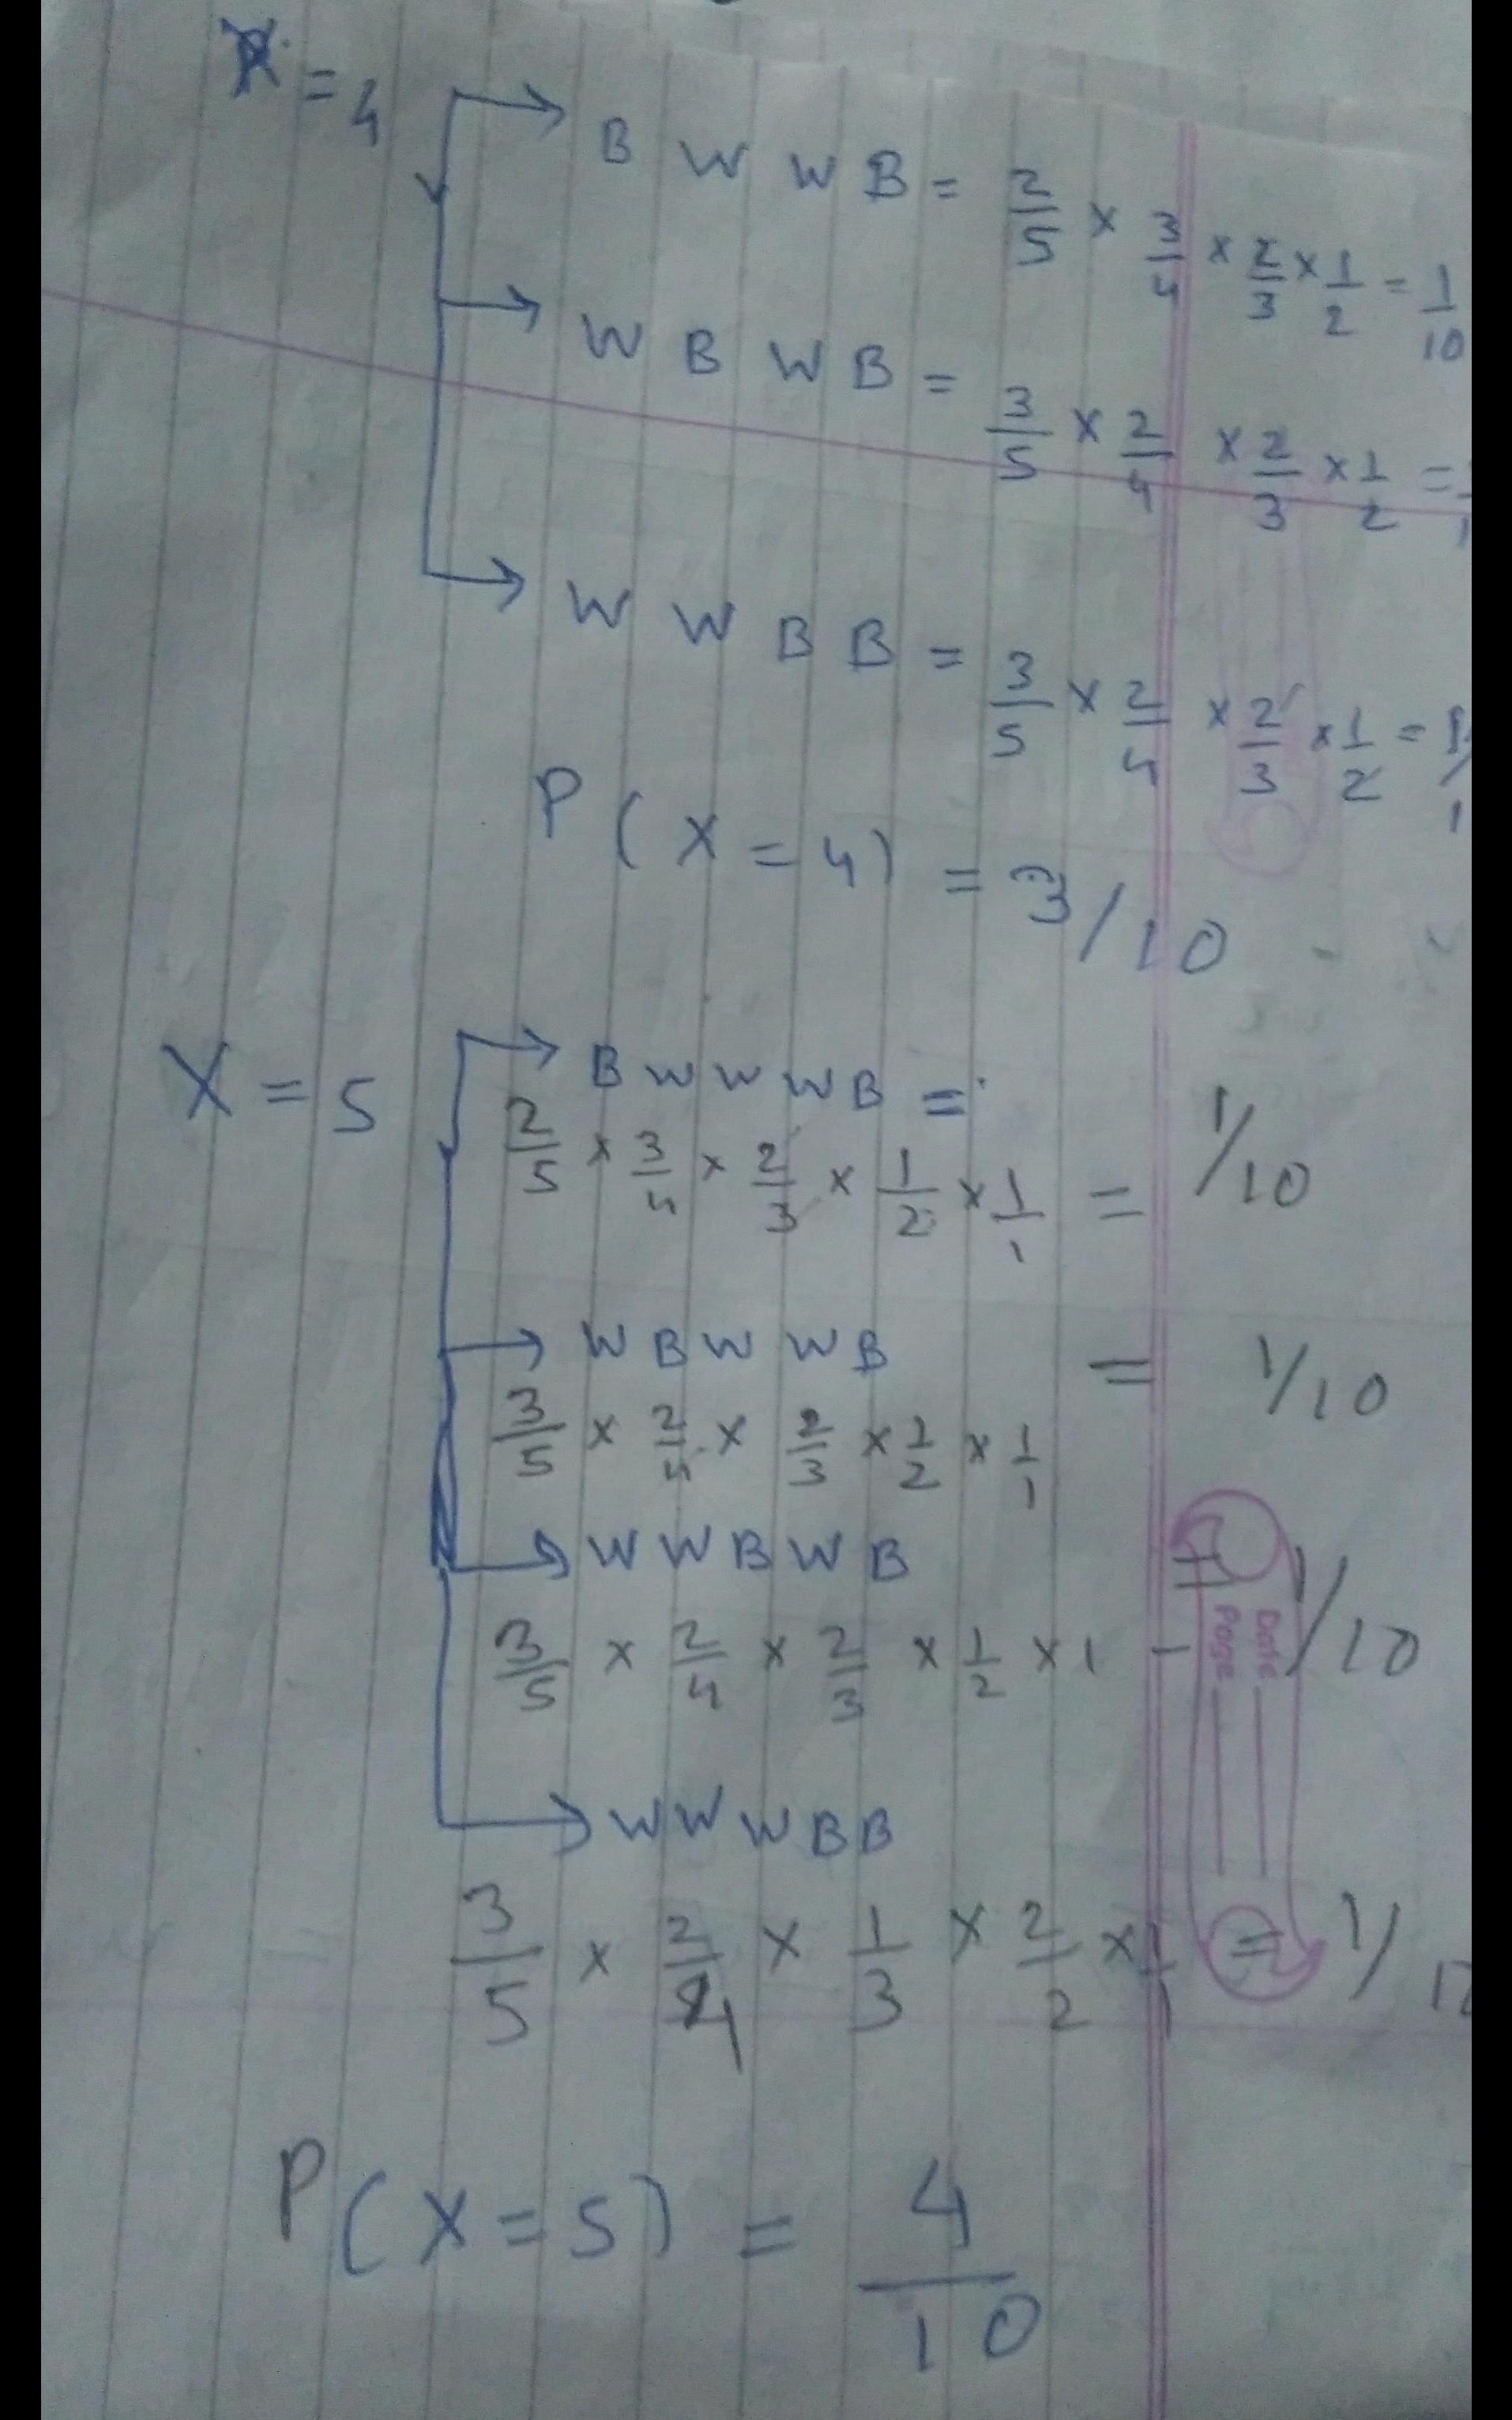 X = 4
B W W B = 2/5 × 3/4 × 2/3 × 1/2 = 1/10
W B W B = 3/5 × 2/4 × 2/3 × 1/2 =
W W B B = 3/5 × 2/4 × 2/3 × 1/2 = 1/1
P (X = 4) = 3/10
X = 5
B W W W B =
2/5 × 3/4 × 2/3 × 1/2 × 1/1 = 1/10
W B W W B = 1/10
3/5 × 2/4 × 2/3 × 1/2 × 1/1
W W B W B = 1/10
3/5 × 2/4 × 2/3 × 1/2 × 1 -
Date
Page
W W W B B
3/5 × 2/4 × 1/3 × 2/2 × 1/1 = 1/10
P (X = 5) = 4/10